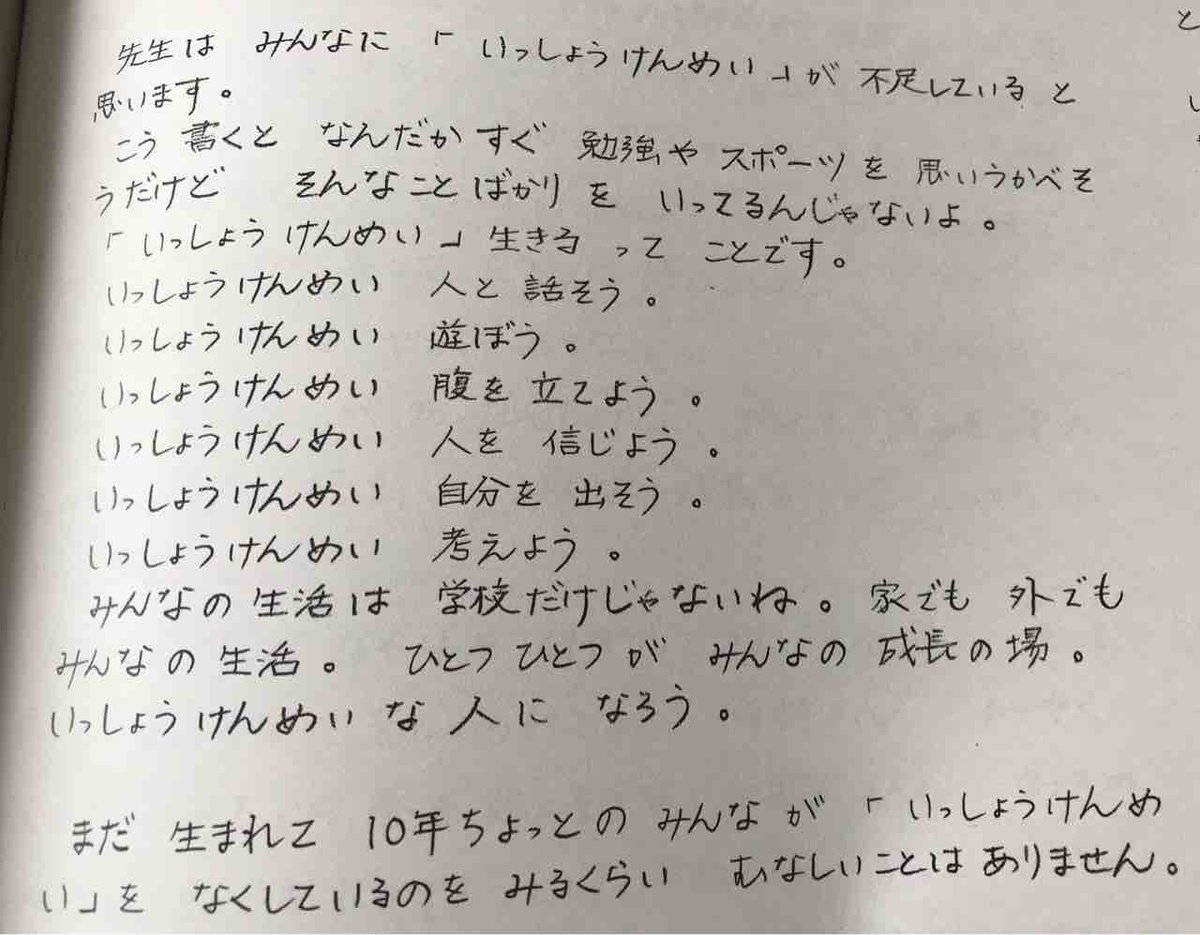 先生は みんなに 「いっしょうけんめい」が 不足していると
思います。
こう 書くと なんだか すぐ 勉強や スポーツを 思いうかべそ
うだけど そんなことばかりを いってるんじゃないよ。
「いっしょうけんめい」生きるって ことです。
いっしょうけんめい 人と 話そう。
いっしょうけんめい 遊ぼう。
いっしょうけんめい 腹を 立てよう。
いっしょうけんめい 人を 信じよう。
いっしょうけんめい 自分を 出そう。
いっしょうけんめい 考えよう。
みんなの 生活は 学校だけじゃないね。家でも 外でも
みんなの 生活。 ひとつひとつが みんなの 成長の場。
いっしょうけんめいな 人に なろう。
まだ 生まれて 10年ちょっとの みんなが 「いっしょうけんめ
い」を なくしているのを みるくらい むなしいことはありません。
と